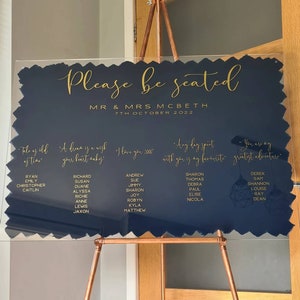 Please be seated
MR & MRS MCBETH
7TH OCTOBER 2022
Tale as old
as time
RYAN
EMILY
CHRISTOPHER
CAITLIN
A dream is a wish
your heart makes
RICHARD
SUSAN
DUANE
ALYSSA
RICHIE
ANNE
LEWIS
JAXON
I love you 3000
ANDREW
SUE
JIMMY
SHARON
JOY
ROBYN
KYLA
MATTHEW
Any day spent
with you is my favourite
SHARON
THOMAS
DEBRA
PAUL
ELISE
NICOLA
You are my
greatest adventure
DEREK
SAM
SHANNON
LOUISE
RAY
DEAN